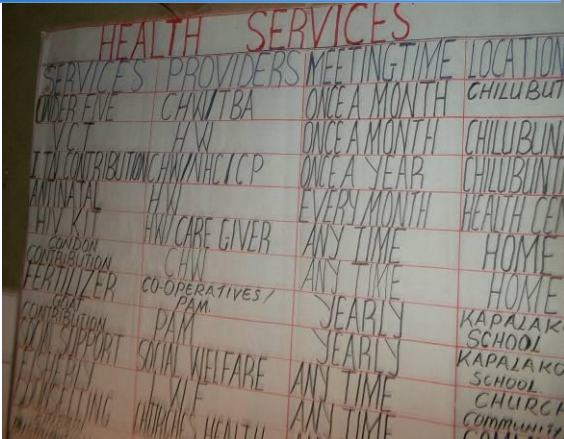 HEALTH SERVICES
SERVICES PROVIDERS MEETING TIME LOCATION
UNDER FIVE CHW/TBA ONCE A MONTH CHILUBUT
VCT HW ONCE A MONTH CHILUBUN
ITN CONTRIBUTION CHW/NHC/CP ONCE A YEAR CHILUBUNI
ANTINATAL HW EVERY MONTH HEALTH CEN
HIV HW/CARE GIVER ANY TIME HOME
CONDON CONTRIBUTION CHW ANY TIME HOME
FERTILIZER CO-OPERATIVES/ PAM. YEARLY KAPALAKO SCHOOL
CONTRIBUTION PAM YEARLY KAPALAKO SCHOOL
SUPPORT SOCIAL WELFARE ANY TIME CHURCH
ANY TIME COMMUNITY
CHURCHES HEALTH